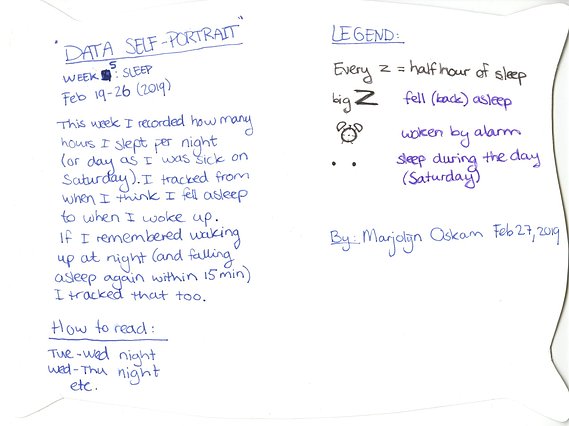 "DATA SELF-PORTRAIT"
WEEK 5: SLEEP
Feb 19-26 (2019)
This week I recorded how many
hours I slept per night
(or day as I was sick on
Saturday). I tracked from
when I think I fell asleep
to when I woke up.
If I remembered waking
up at night (and falling
asleep again within 15 min)
I tracked that too.
How to read:
Tue-Wed night
Wed-Thu night
etc.
LEGEND:
Every z = half hour of sleep
big Z fell (back) asleep
woken by alarm
. . sleep during the day
(Saturday)
By: Marjolijn Oskam Feb 27, 2019